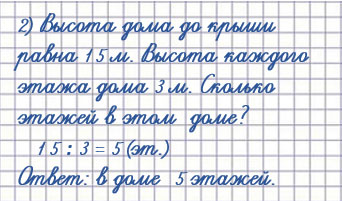 2) Высота дома до крыши
равна 15 м. Высота каждого
этажа дома 3 м. Сколько
этажей в этом доме?
15 : 3 = 5 (эт.)
Ответ: в доме 5 этажей.